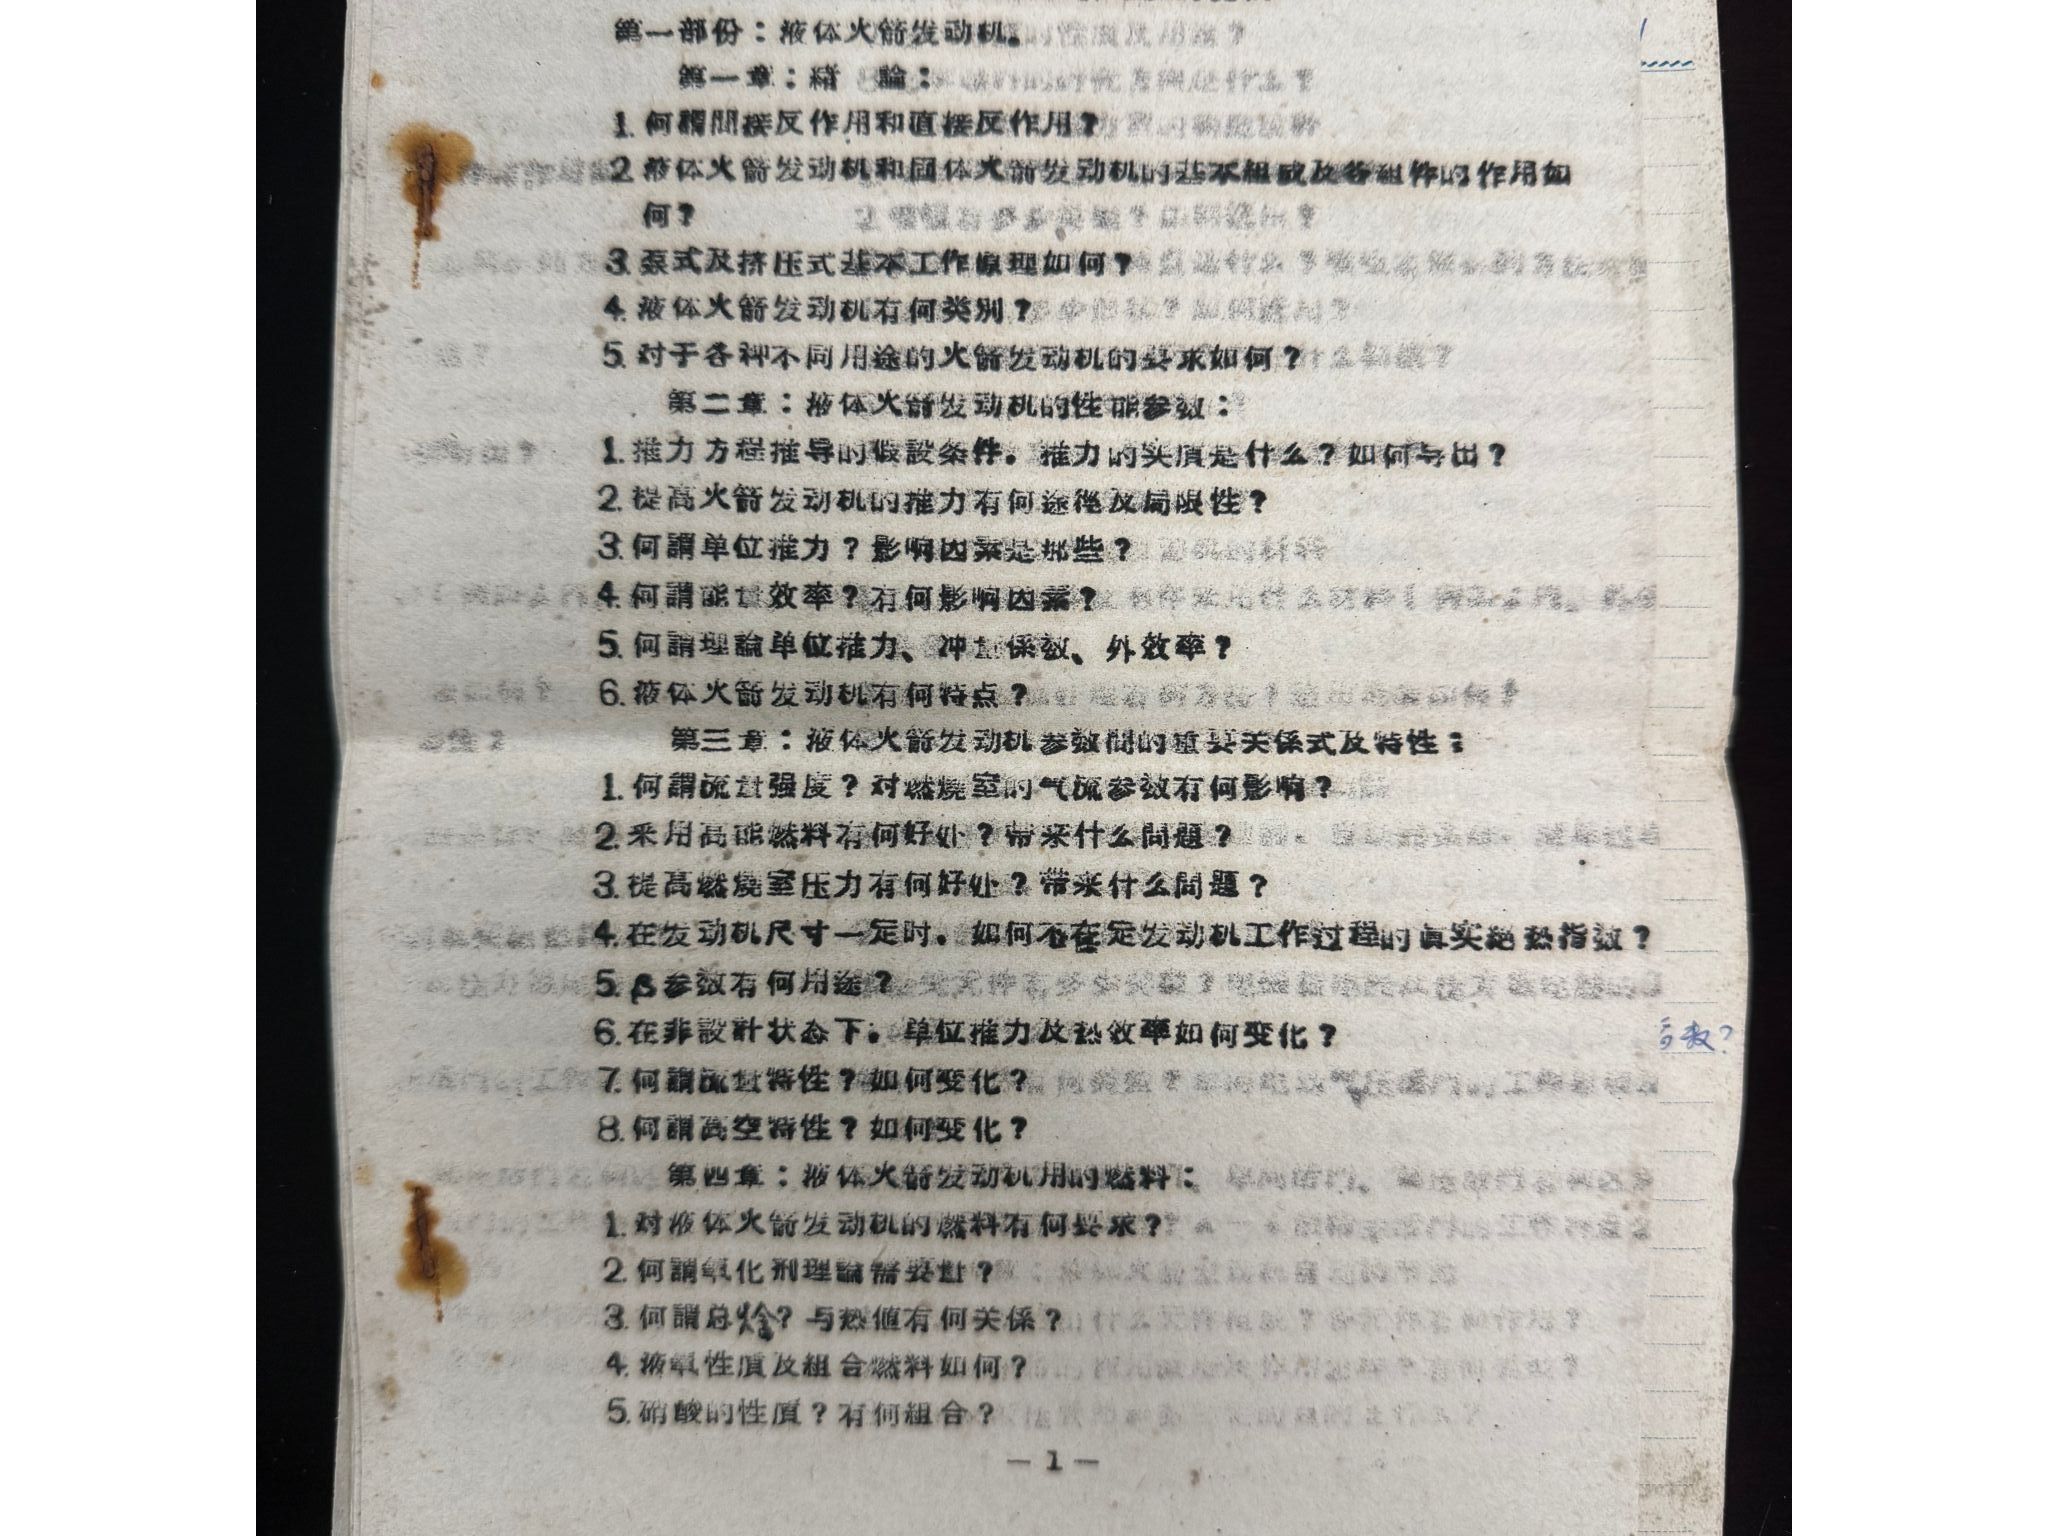 第一部份：液体火箭发动机。
第一章：緒 論：
1. 何謂間接反作用和直接反作用？
2. 液体火箭发动机和固体火箭发动机的基本組成及各組件的作用如
何？
3. 泵式及挤压式基本工作原理如何？
4. 液体火箭发动机有何类別？
5. 对于各种不同用途的火箭发动机的要求如何？
第二章：液体火箭发动机的性能参数：
1. 推力方程推导的假設条件。推力的实質是什么？如何导出？
2. 提高火箭发动机的推力有何途徑及局限性？
3. 何謂单位推力？影响因素是那些？
4. 何謂能量效率？有何影响因素？
5. 何謂理論单位推力、冲量係数、外效率？
6. 液体火箭发动机有何特点？
第三章：液体火箭发动机参数間的重要关係式及特性：
1. 何謂流量强度？对燃烧室的气流参数有何影响？
2. 采用高能燃料有何好处？带来什么問題？
3. 提高燃燒室压力有何好处？带来什么問題？
4. 在发动机尺寸一定时。如何定发动机工作过程的真实绝热指数？
5. β参数有何用途？
6. 在非設計状态下。单位推力及热效率如何变化？
7. 何謂流量特性？如何变化？
8. 何謂高空特性？如何变化？
第四章：液体火箭发动机用的燃料：
1. 对液体火箭发动机的燃料有何要求？
2. 何謂氧化剂理論需要量？
3. 何謂总焓？与热值有何关係？
4. 液氧性質及組合燃料如何？
5. 硝酸的性質？有何組合？
— 1 —
数？